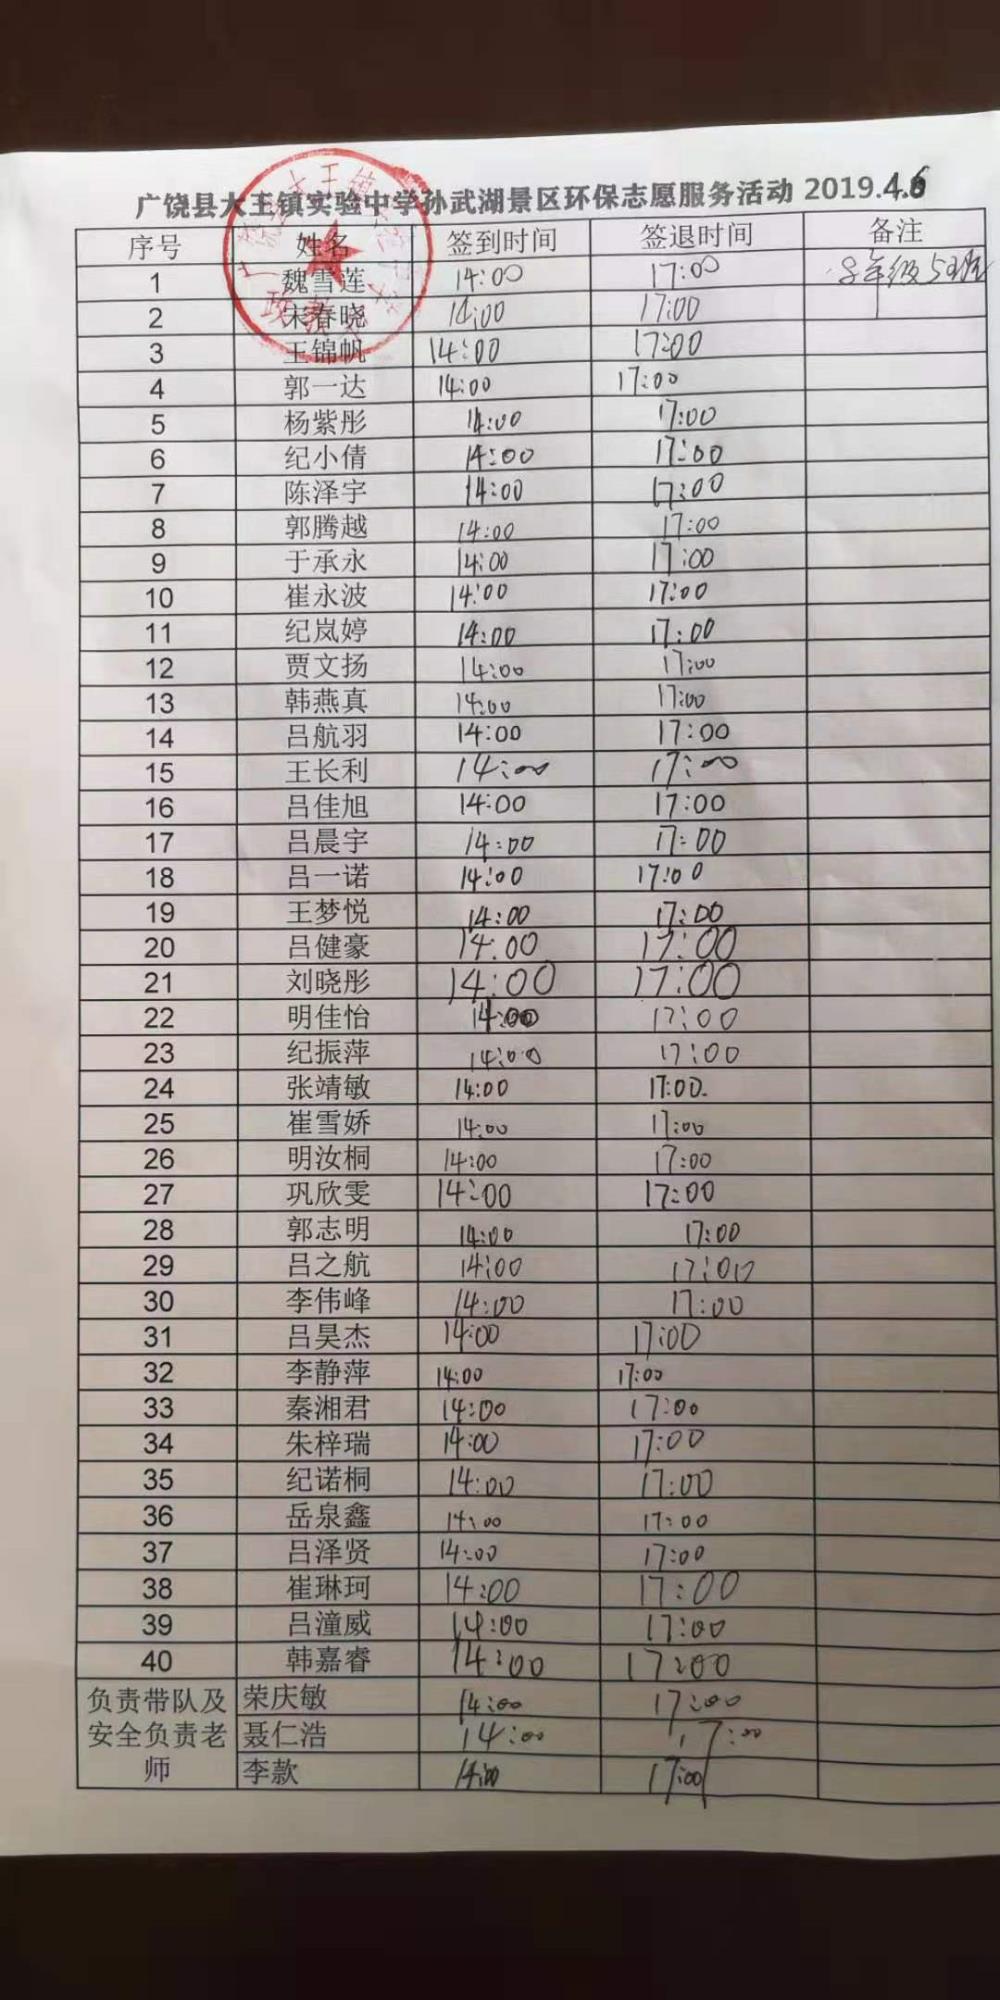 广饶县大王镇实验中学孙武湖景区环保志愿服务活动 2019.4.6
序号 姓名 签到时间 签退时间 备注
1 魏雪莲 14:00 17:00 8年级5班
2 宋春晓 14:00 17:00
3 王锦帆 14:00 17:00
4 郭一达 14:00 17:00
5 杨紫彤 14:00 17:00
6 纪小倩 14:00 17:00
7 陈泽宇 14:00 17:00
8 郭腾越 14:00 17:00
9 于承永 14:00 17:00
10 崔永波 14:00 17:00
11 纪岚婷 14:00 17:00
12 贾文扬 14:00 17:00
13 韩燕真 14:00 17:00
14 吕航羽 14:00 17:00
15 王长利 14:00 17:00
16 吕佳旭 14:00 17:00
17 吕晨宇 14:00 17:00
18 吕一诺 14:00 17:00
19 王梦悦 14:00 17:00
20 吕健豪 14:00 17:00
21 刘晓彤 14:00 17:00
22 明佳怡 14:00 17:00
23 纪振萍 14:00 17:00
24 张靖敏 14:00 17:00.
25 崔雪娇 14:00 17:00
26 明汝桐 14:00 17:00
27 巩欣雯 14:00 17:00
28 郭志明 14:00 17:00
29 吕之航 14:00 17:00
30 李伟峰 14:00 17:00
31 吕昊杰 14:00 17:00
32 李静萍 14:00 17:00
33 秦湘君 14:00 17:00
34 朱梓瑞 14:00 17:00
35 纪诺桐 14:00 17:00
36 岳泉鑫 14:00 17:00
37 吕泽贤 14:00 17:00
38 崔琳珂 14:00 17:00
39 吕潼威 14:00 17:00
40 韩嘉睿 14:00 17:00
负责带队及 荣庆敏 14:00 17:00
安全负责老 聂仁浩 14:00 17:00
师 李款 14:00 17:00